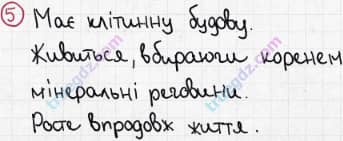 5 Має клітинну будову.
Живиться, вбираючи коренем
мінеральні речовини.
Росте впродовж життя.